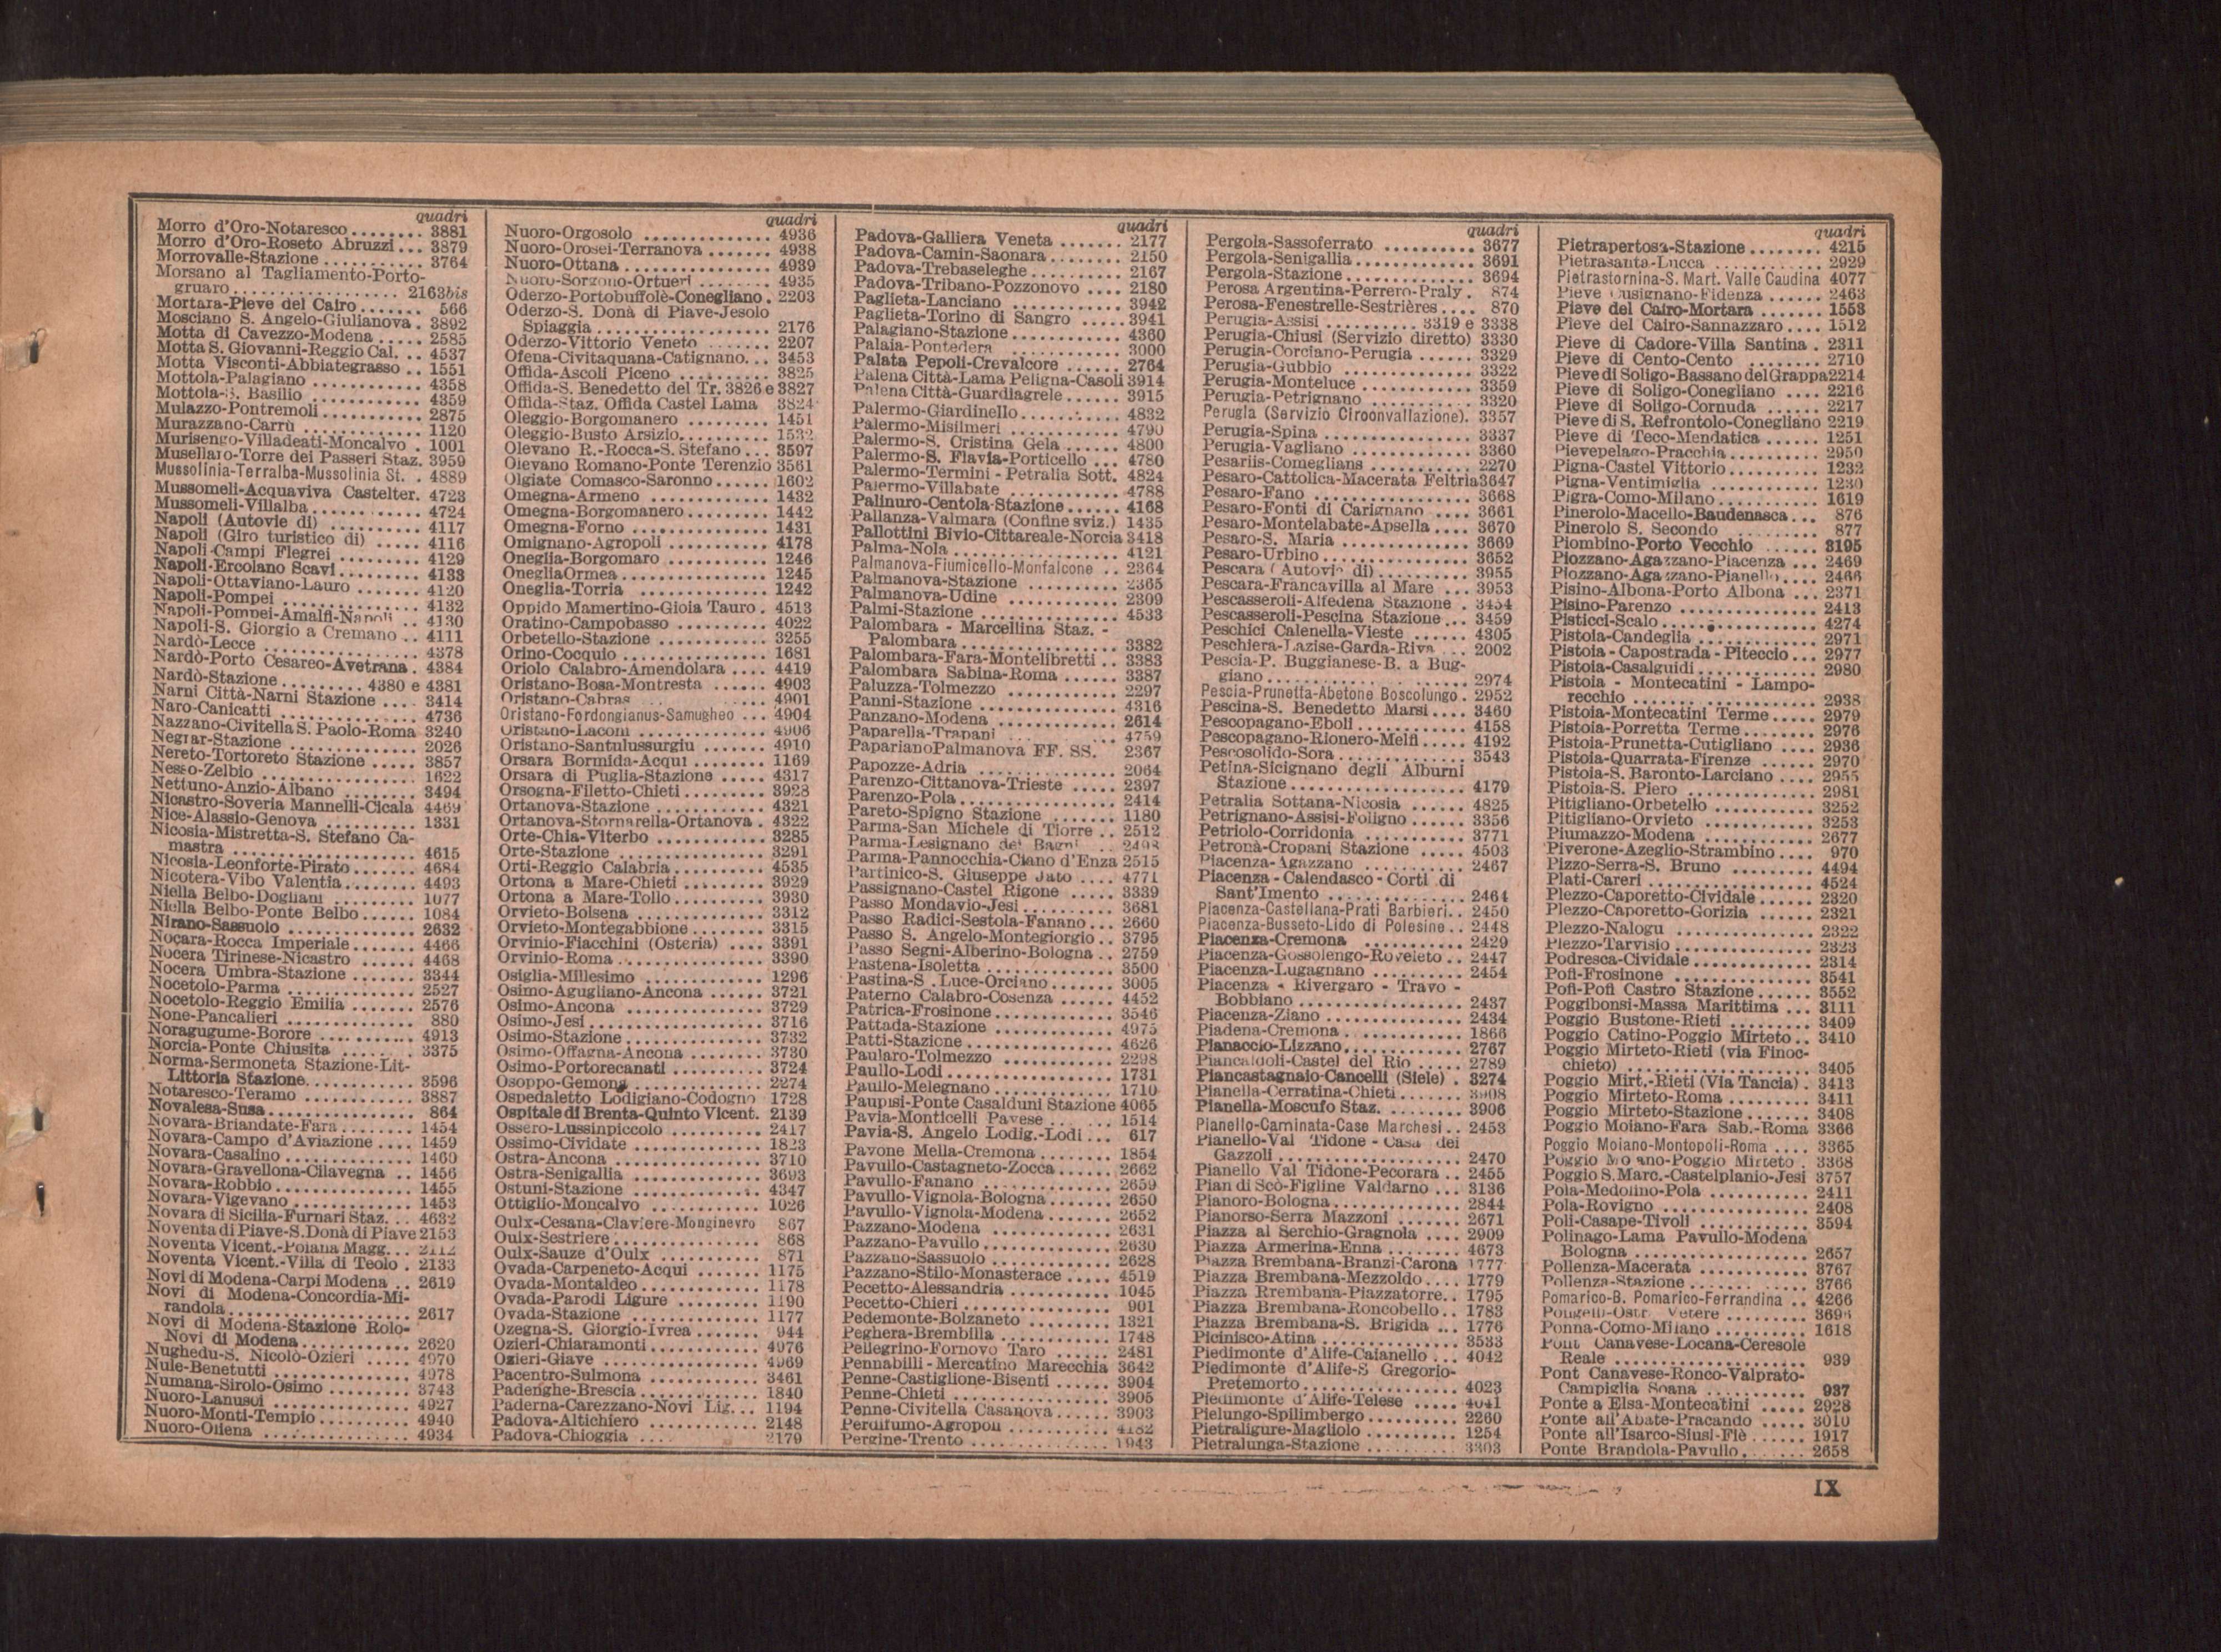 quadri
Morro d'Oro-Notaresco ........ 3881
Morro d'Oro-Roseto Abruzzi ... 3879
Morrovalle-Stazione .......... 3764
Morsano al Tagliamento-Porto-
gruaro .................. 2163bis
Mortara-Pieve del Cairo ....... 566
Mosciano S. Angelo-Giulianova . 3892
Motta di Cavezzo-Modena ..... 2585
Motta S. Giovanni-Reggio Cal. .. 4537
Motta Visconti-Abbiategrasso .. 1551
Mottola-Palagiano ............ 4358
Mottola-S. Basilio ............ 4359
Mulazzo-Pontremoli ........... 2875
Murazzano-Carrù ............. 1120
Murisengo-Villadeati-Moncalvo . 1001
Musellaro-Torre dei Passeri Staz. 3959
Mussolinia-Terralba-Mussolinia St. . 4889
Mussomeli-Acquaviva Castelter. 4723
Mussomeli-Villalba ............ 4724
Napoli (Autovie di) .......... 4117
Napoli (Giro turistico di) ..... 4116
Napoli-Campi Flegrei ......... 4129
Napoli-Ercolano Scavi ......... 4133
Napoli-Ottaviano-Lauro ....... 4120
Napoli-Pompei ............... 4132
Napoli-Pompei-Amalfi-Napoli .. 4130
Napoli-S. Giorgio a Cremano .. 4111
Nardò-Lecce ................. 4378
Nardò-Porto Cesareo-Avetrana . 4384
Nardò-Stazione ......... 4380 e 4381
Narni Città-Narni Stazione .... 3414
Naro-Canicatti ............... 4736
Nazzano-Civitella S. Paolo-Roma 3240
Negrar-Stazione .............. 2026
Nereto-Tortoreto Stazione ..... 3857
Nesso-Zelbio ................. 1622
Nettuno-Anzio-Albano ........ 3494
Nicastro-Soveria Mannelli-Cicala 4469
Nice-Alassio-Genova .......... 1331
Nicosia-Mistretta-S. Stefano Ca-
mastra .................... 4615
Nicosia-Leonforte-Pirato ....... 4684
Nicotera-Vibo Valentia ........ 4493
Niella Belbo-Dogliani ......... 1077
Niella Belbo-Ponte Belbo ...... 1084
Nirano-Sassuolo .............. 2632
Nocara-Rocca Imperiale ....... 4466
Nocera Tirinese-Nicastro ...... 4468
Nocera Umbra-Stazione ....... 3344
Nocetolo-Parma .............. 2527
Nocetolo-Reggio Emilia ....... 2576
None-Pancalieri .............. 880
Noragugume-Borore ........... 4913
Norcia-Ponte Chiusita ........ 3375
Norma-Sermoneta Stazione-Lit-
Littoria Stazione ............ 3596
Notaresco-Teramo ............ 3887
Novalesa-Susa ................ 864
Novara-Briandate-Fara ........ 1454
Novara-Campo d'Aviazione .... 1459
Novara-Casalino .............. 1460
Novara-Gravellona-Cilavegna .. 1456
Novara-Robbio ............... 1455
Novara-Vigevano ............. 1453
Novara di Sicilia-Furnari Staz. .. 4632
Noventa di Piave-S. Donà di Piave 2153
Noventa Vicent.-Poiana Magg. .. 2112
Noventa Vicent.-Villa di Teolo . 2133
Novi di Modena-Carpi Modena .. 2619
Novi di Modena-Concordia-Mi-
randola .................... 2617
Novi di Modena-Stazione Rolo-
Novi di Modena ............ 2620
Nughedu-S. Nicolò-Ozieri ..... 4970
Nule-Benetutti ............... 4978
Numana-Sirolo-Osimo ......... 3743
Nuoro-Lanusei ............... 4927
Nuoro-Monti-Tempio .......... 4940
Nuoro-Oliena ................ 4934
quadri
Nuoro-Orgosolo .............. 4936
Nuoro-Orosei-Terranova ....... 4938
Nuoro-Ottana ................ 4939
Nuoro-Sorgono-Ortueri ........ 4935
Oderzo-Portobuffolè-Conegliano . 2203
Oderzo-S. Donà di Piave-Jesolo
Spiaggia ................... 2176
Oderzo-Vittorio Veneto ....... 2207
Ofena-Civitaquana-Catignano ... 3453
Offida-Ascoli Piceno .......... 3825
Offida-S. Benedetto del Tr. 3826 e 3827
Offida-Staz. Offida Castel Lama 3824
Oleggio-Borgomanero ......... 1451
Oleggio-Busto Arsizio .......... 1532
Olevano R.-Rocca-S. Stefano ... 3597
Olevano Romano-Ponte Terenzio 3561
Olgiate Comasco-Saronno ...... 1602
Omegna-Armeno ............. 1432
Omegna-Borgomanero ........ 1442
Omegna-Forno ............... 1431
Omignano-Agropoli ........... 4178
Oneglia-Borgomaro ........... 1246
OnegliaOrmea ............... 1245
Oneglia-Torria ............... 1242
Oppido Mamertino-Gioia Tauro . 4513
Oratino-Campobasso .......... 4022
Orbetello-Stazione ............ 3255
Orino-Cocquio ................ 1681
Oriolo Calabro-Amendolara .... 4419
Oristano-Bosa-Montresta ...... 4903
Oristano-Cabras .............. 4901
Oristano-Fordongianus-Samugheo ... 4904
Oristano-Laconi .............. 4906
Oristano-Santulussurgiu ....... 4910
Orsara Bormida-Acqui ........ 1169
Orsara di Puglia-Stazione ..... 4317
Orsogna-Filetto-Chieti ......... 3928
Ortanova-Stazione ............ 4321
Ortanova-Stornarella-Ortanova . 4322
Orte-Chia-Viterbo ............ 3285
Orte-Stazione ................ 3291
Orti-Reggio Calabria .......... 4535
Ortona a Mare-Chieti ......... 3929
Ortona a Mare-Tollo .......... 3930
Orvieto-Bolsena .............. 3312
Orvieto-Montegabbione ........ 3315
Orvinio-Fiacchini (Osteria) .... 3391
Orvinio-Roma ................ 3390
Osiglia-Millesimo ............. 1296
Osimo-Agugliano-Ancona ...... 3721
Osimo-Ancona ............... 3729
Osimo-Jesi ................... 3716
Osimo-Stazione ............... 3732
Osimo-Offagna-Ancona ........ 3730
Osimo-Portorecanati .......... 3724
Osoppo-Gemona .............. 2274
Ospedaletto Lodigiano-Codogno 1728
Ospitale di Brenta-Quinto Vicent. 2139
Ossero-Lussinpiccolo .......... 2417
Ossimo-Cividate .............. 1823
Ostra-Ancona ................ 3710
Ostra-Senigallia .............. 3693
Ostuni-Stazione .............. 4347
Ottiglio-Moncalvo ............ 1026
Oulx-Cesana-Claviere-Monginevro 867
Oulx-Sestriere ................ 868
Oulx-Sauze d'Oulx ........... 871
Ovada-Carpeneto-Acqui ....... 1175
Ovada-Montaldeo ............. 1178
Ovada-Parodi Ligure ......... 1190
Ovada-Stazione ............... 1177
Ozegna-S. Giorgio-Ivrea ....... 944
Ozieri-Chiaramonti ............ 4976
Ozieri-Giave ................. 4969
Pacentro-Sulmona ............ 3461
Padenghe-Brescia ............. 1840
Paderna-Carezzano-Novi Lig. .. 1194
Padova-Altichiero ............ 2148
Padova-Chioggia .............. 2179
quadri
Padova-Galliera Veneta ....... 2177
Padova-Camin-Saonara ........ 2150
Padova-Trebaseleghe .......... 2167
Padova-Tribano-Pozzonovo .... 2180
Paglieta-Lanciano ............ 3942
Paglieta-Torino di Sangro ..... 3941
Palagiano-Stazione ............ 4360
Palaia-Pontedera ............. 3000
Palata Pepoli-Crevalcore ...... 2764
Palena Città-Lama Peligna-Casoli 3914
Palena Città-Guardiagrele ...... 3915
Palermo-Giardinello ........... 4832
Palermo-Misilmeri ............ 4790
Palermo-S. Cristina Gela ...... 4800
Palermo-S. Flavia-Porticello ... 4780
Palermo-Termini - Petralia Sott. 4824
Palermo-Villabate ............ 4788
Palinuro-Centola-Stazione ...... 4168
Pallanza-Valmara (Confine sviz.) 1435
Pallottini Bivio-Cittareale-Norcia 3418
Palma-Nola .................. 4121
Palmanova-Fiumicello-Monfalcone .. 2364
Palmanova-Stazione .......... 2365
Palmanova-Udine ............. 2309
Palmi-Stazione ............... 4533
Palombara - Marcellina Staz. -
Palombara ................. 3382
Palombara-Fara-Montelibretti .. 3383
Palombara Sabina-Roma ...... 3387
Paluzza-Tolmezzo ............ 2297
Panni-Stazione ............... 4316
Panzano-Modena ............. 2614
Paparella-Trapani ............ 4759
PaparianoPalmanova FF. SS. 2367
Papozze-Adria ............... 2064
Parenzo-Cittanova-Trieste ..... 2397
Parenzo-Pola ................. 2414
Pareto-Spigno Stazione ....... 1180
Parma-San Michele di Tiorre .. 2512
Parma-Lesignano de' Bagni .. 2498
Parma-Pannocchia-Ciano d'Enza 2515
Partinico-S. Giuseppe Jato .... 4771
Passignano-Castel Rigone ..... 3339
Passo Mondavio-Jesi .......... 3681
Passo Radici-Sestola-Fanano ... 2660
Passo S. Angelo-Montegiorgio .. 3795
Passo Segni-Alberino-Bologna .. 2759
Pastena-Isoletta .............. 3500
Pastina-S .Luce-Orciano ....... 3005
Paterno Calabro-Cosenza ...... 4452
Patrica-Frosinone ............. 3546
Pattada-Stazione ............. 4975
Patti-Stazione ................ 4626
Paularo-Tolmezzo ............ 2298
Paullo-Lodi .................. 1731
Paullo-Melegnano ............. 1710
Paupisi-Ponte Casalduni Stazione 4065
Pavia-Monticelli Pavese ....... 1514
Pavia-S. Angelo Lodig.-Lodi ... 617
Pavone Mella-Cremona ........ 1854
Pavullo-Castagneto-Zocca ...... 2662
Pavullo-Fanano .............. 2659
Pavullo-Vignola-Bologna ....... 2650
Pavullo-Vignola-Modena ....... 2652
Pazzano-Modena ............. 2631
Pazzano-Pavullo .............. 2630
Pazzano-Sassuolo ............. 2628
Pazzano-Stilo-Monasterace ..... 4519
Pecetto-Alessandria ........... 1045
Pecetto-Chieri ................ 901
Pedemonte-Bolzaneto ......... 1321
Peghera-Brembilla ............ 1748
Pellegrino-Fornovo Taro ...... 2481
Pennabilli - Mercatino Marecchia 3642
Penne-Castiglione-Bisenti ...... 3904
Penne-Chieti ................. 3905
Penne-Civitella Casanova ...... 3903
Perdifumo-Agropoli ........... 4182
Pergine-Trento ............... 1943
quadri
Pergola-Sassoferrato .......... 3677
Pergola-Senigallia ............. 3691
Pergola-Stazione .............. 3694
Perosa Argentina-Perrero-Praly . 874
Perosa-Fenestrelle-Sestrières .... 870
Perugia-Assisi .......... 3319 e 3338
Perugia-Chiusi (Servizio diretto) 3330
Perugia-Corciano-Perugia ...... 3329
Perugia-Gubbio .............. 3322
Perugia-Monteluce ............ 3359
Perugia-Petrignano ........... 3320
Perugia (Servizio Circonvallazione). 3357
Perugia-Spina ................ 3337
Perugia-Vagliano ............. 3360
Pesariis-Comeglians ........... 2270
Pesaro-Cattolica-Macerata Feltria 3647
Pesaro-Fano ................. 3668
Pesaro-Fonti di Carignano .... 3661
Pesaro-Montelabate-Apsella .... 3670
Pesaro-S. Maria .............. 3669
Pesaro-Urbino ................ 3652
Pescara (Autovie di) .......... 3955
Pescara-Francavilla al Mare ... 3953
Pescasseroli-Alfedena Stazione . 3454
Pescasseroli-Pescina Stazione ... 3459
Peschici Calenella-Vieste ...... 4305
Peschiera-Lazise-Garda-Riva ... 2002
Pescia-P. Buggianese-B. a Bug-
giano ...................... 2974
Pescia-Prunetta-Abetone Boscolungo . 2952
Pescina-S. Benedetto Marsi .... 3460
Pescopagano-Eboli ............ 4158
Pescopagano-Rionero-Melfi ..... 4192
Pescosolido-Sora .............. 3543
Petina-Sicignano degli Alburni
Stazione .................... 4179
Petralia Sottana-Nicosia ...... 4825
Petrignano-Assisi-Foligno ...... 3356
Petriolo-Corridonia ........... 3771
Petronà-Cropani Stazione ..... 4503
Piacenza-Agazzano ........... 2467
Piacenza - Calendasco - Corti di
Sant'Imento ................ 2464
Piacenza-Castellana-Prati Barbieri .. 2450
Piacenza-Busseto-Lido di Polesine .. 2448
Piacenza-Cremona ........... 2429
Piacenza-Gossolengo-Roveleto .. 2447
Piacenza-Lugagnano .......... 2454
Piacenza - Rivergaro - Travo -
Bobbiano ................... 2437
Piacenza-Ziano ............... 2434
Piadena-Cremona ............. 1866
Pianaccio-Lizzano ............. 2767
Piancaldoli-Castel del Rio ..... 2789
Piancastagnaio-Cancelli (Siele) . 3274
Pianella-Cerratina-Chieti ...... 3908
Pianella-Moscufo Staz. ........ 3906
Pianello-Caminata-Case Marchesi .. 2453
Pianello-Val Tidone - Casa dei
Gazzoli ..................... 2470
Pianello Val Tidone-Pecorara .. 2455
Pian di Scò-Figline Valdarno ... 3136
Pianoro-Bologna .............. 2844
Pianorso-Serra Mazzoni ....... 2671
Piazza al Serchio-Gragnola .... 2909
Piazza Armerina-Enna ........ 4673
Piazza Brembana-Branzi-Carona 1777
Piazza Brembana-Mezzoldo .... 1779
Piazza Brembana-Piazzatorre .. 1795
Piazza Brembana-Roncobello .. 1783
Piazza Brembana-S. Brigida ... 1776
Picinisco-Atina ............... 3533
Piedimonte d'Alife-Caianello ... 4042
Piedimonte d'Alife-S Gregorio-
Pretemorto ................. 4023
Piedimonte d'Alife-Telese ..... 4041
Pielungo-Spilimbergo .......... 2260
Pietraligure-Magliolo .......... 1254
Pietralunga-Stazione .......... 3303
quadri
Pietrapertosa-Stazione ........ 4215
Pietrasanta-Lucca ............ 2929
Pietrastornina-S. Mart. Valle Caudina 4077
Pieve Cusignano-Fidenza ...... 2463
Pieve del Cairo-Mortara ....... 1553
Pieve del Cairo-Sannazzaro .... 1512
Pieve di Cadore-Villa Santina . 2311
Pieve di Cento-Cento ........ 2710
Pieve di Soligo-Bassano del Grappa 2214
Pieve di Soligo-Conegliano .... 2216
Pieve di Soligo-Cornuda ...... 2217
Pieve di S. Refrontolo-Conegliano 2219
Pieve di Teco-Mendatica ...... 1251
Pievepelago-Pracchia .......... 2950
Pigna-Castel Vittorio .......... 1232
Pigna-Ventimiglia ............ 1230
Pigra-Como-Milano ........... 1619
Pinerolo-Macello-Baudenasca ... 876
Pinerolo S. Secondo .......... 877
Piombino-Porto Vecchio ...... 3195
Piozzano-Agazzano-Piacenza ... 2469
Piozzano-Agazzano-Pianello .... 2466
Pisino-Albona-Porto Albona ... 2371
Pisino-Parenzo ............... 2413
Pisticci-Scalo ................. 4274
Pistoia-Candeglia ............. 2971
Pistoia - Capostrada - Piteccio ... 2977
Pistoia-Casalguidi ............. 2980
Pistoia - Montecatini - Lampo-
recchio ..................... 2938
Pistoia-Montecatini Terme ..... 2979
Pistoia-Porretta Terme ........ 2976
Pistoia-Prunetta-Cutigliano .... 2936
Pistoia-Quarrata-Firenze ...... 2970
Pistoia-S. Baronto-Larciano .... 2955
Pistoia-S. Piero .............. 2981
Pitigliano-Orbetello ........... 3252
Pitigliano-Orvieto ............ 3253
Piumazzo-Modena ............ 2677
Piverone-Azeglio-Strambino .... 970
Pizzo-Serra-S. Bruno ......... 4494
Plati-Careri .................. 4524
Plezzo-Caporetto-Cividale ...... 2320
Plezzo-Caporetto-Gorizia ...... 2321
Plezzo-Nalogu ............... 2322
Plezzo-Tarvisio ............... 2323
Podresca-Cividale ............. 2314
Pofi-Frosinone ............... 3541
Pofi-Pofi Castro Stazione ...... 3552
Poggibonsi-Massa Marittima ... 3111
Poggio Bustone-Rieti ......... 3409
Poggio Catino-Poggio Mirteto .. 3410
Poggio Mirteto-Rieti (via Finoc-
chieto) ..................... 3405
Poggio Mirt.-Rieti (Via Tancia) . 3413
Poggio Mirteto-Roma ......... 3411
Poggio Mirteto-Stazione ....... 3408
Poggio Moiano-Fara Sab.-Roma 3366
Poggio Moiano-Montopoli-Roma .... 3365
Poggio Moiano-Poggio Mirteto . 3368
Poggio S. Marc.-Castelplanio-Jesi 3757
Pola-Medolino-Pola ........... 2411
Pola-Rovigno ................ 2408
Poli-Casape-Tivoli ............ 3594
Polinago-Lama Pavullo-Modena
Bologna .................... 2657
Pollenza-Macerata ............ 3767
Pollenza-Stazione ............. 3766
Pomarico-B. Pomarico-Ferrandina .. 4266
Vetere ......... 3695
Ponna-Como-Milano .......... 1618
Pont Canavese-Locana-Ceresole
Reale ...................... 939
Pont Canavese-Ronco-Valprato-
Campiglia Soana ........... 937
Ponte a Elsa-Montecatini ..... 2928
Ponte all'Abate-Pracando ..... 3010
Ponte all'Isarco-Siusi-Fiè ...... 1917
Ponte Brandola-Pavullo ....... 2658
IX